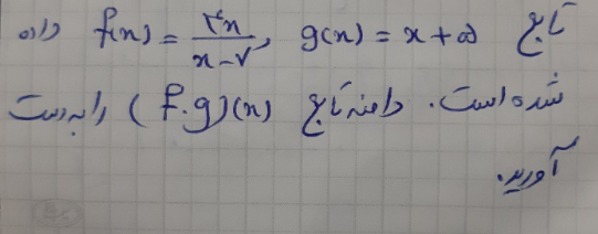 تابع f(x) = ۳x / x-۷ , g(x) = x+۵ داده
شده است. دامنه تابع (f.g)(x) را بدست
آورید.